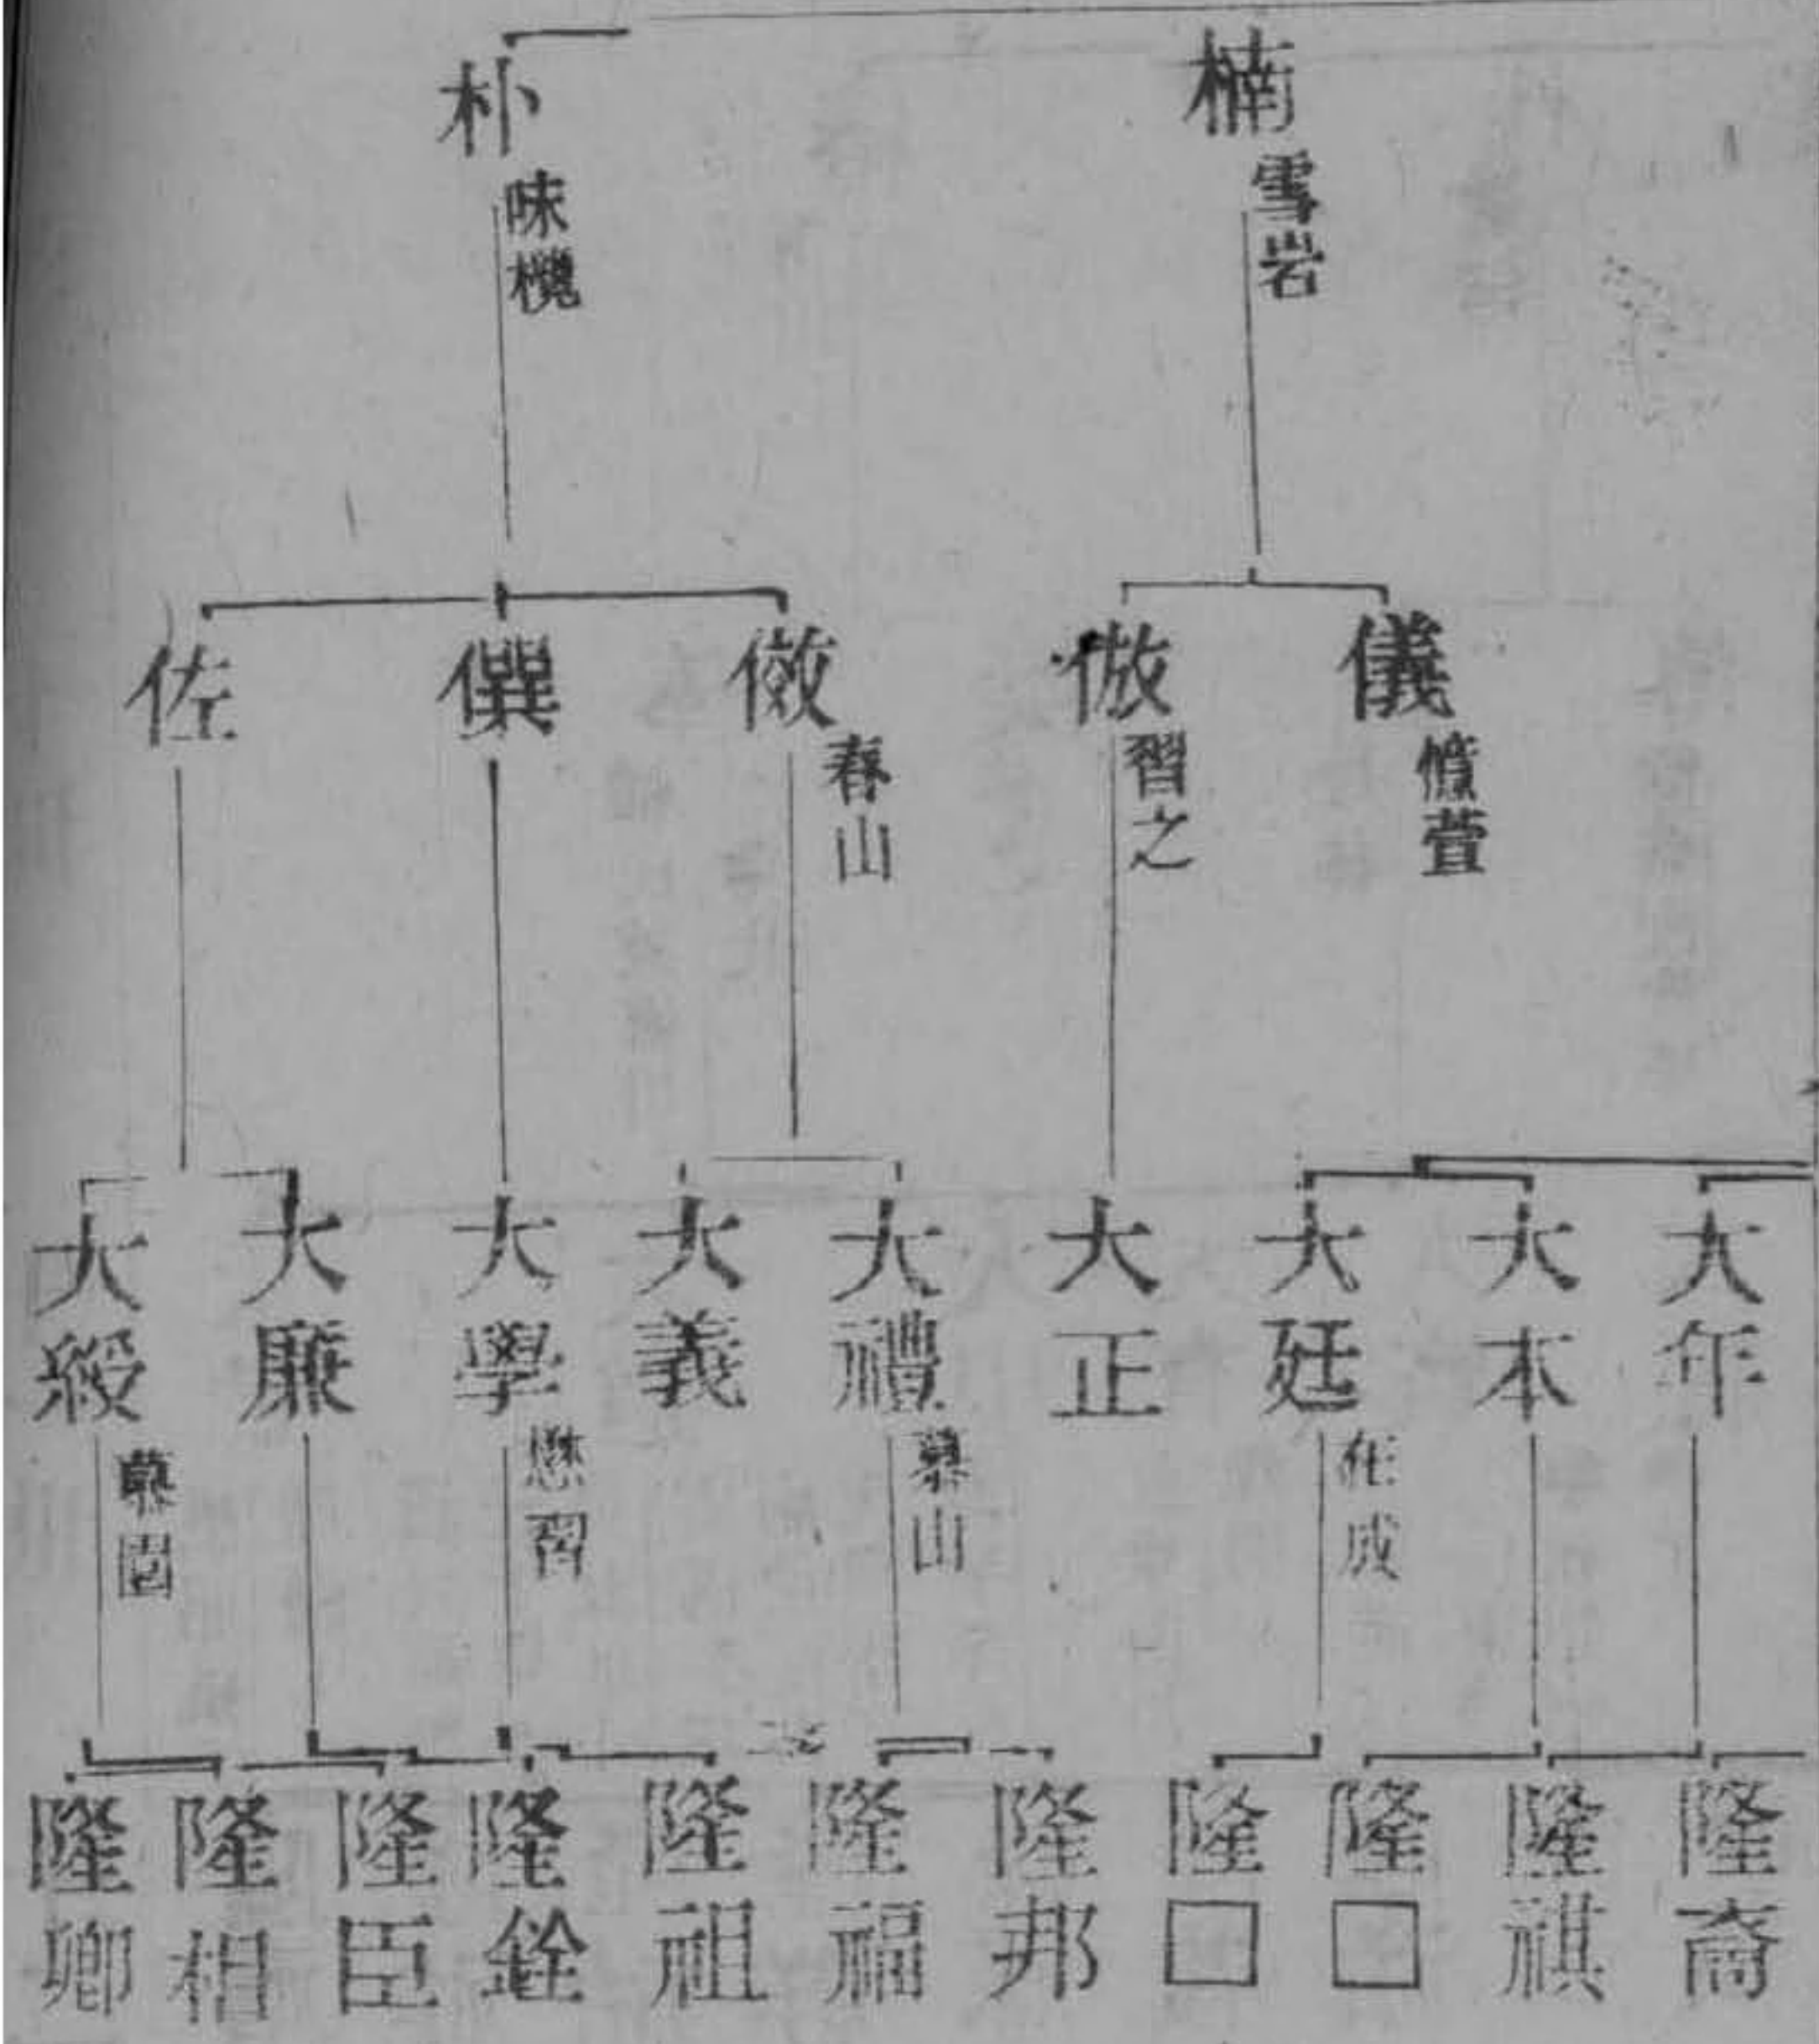 楠 雪岩
朴 味欖
儀 憶萱
倣 習之
儆 春山
僎
佐
大年
大本
大廷 在成
大正
大禮 慕山
大義
大學 懋習
大廉
大綬 慕園
隆裔
隆祺
隆□
隆□
隆邦
隆福
隆祖
隆銓
隆臣
隆相
隆卿